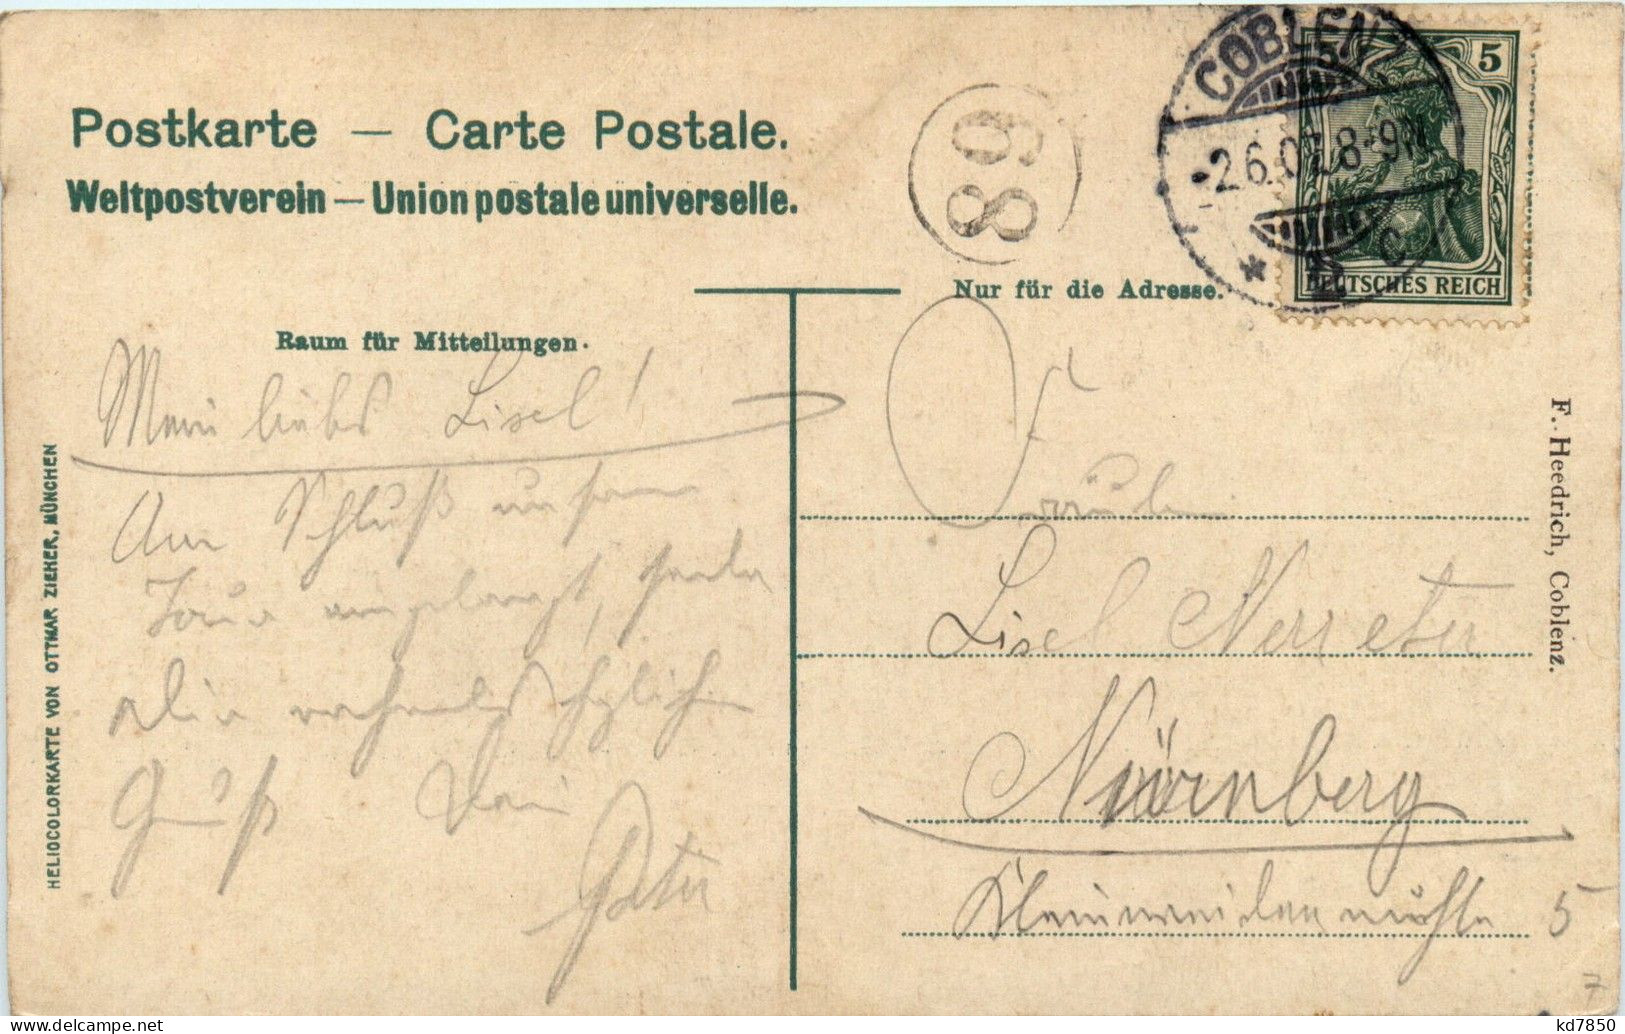 Postkarte — Carte Postale.
Weltpostverein — Union postale universelle.
89
COBLENZ
-2.6.07.8-9N
* 2 c
5
DEUTSCHES REICH
Nur für die Adresse.
Raum für Mitteilungen.
Mein liebes Lisel!
Am Schluß unserer
Tour angelangt, sende
Dir nochmals herzlichen
Gruß Dein
Peter
Fräulein
Lisel Nerreter
Nürnberg
Kleinweidenmühle 5
7
F. Heedrich, Coblenz.
HELIOCOLORKARTE VON OTTMAR ZIEHER, MÜNCHEN
delcampe.net
kd7850